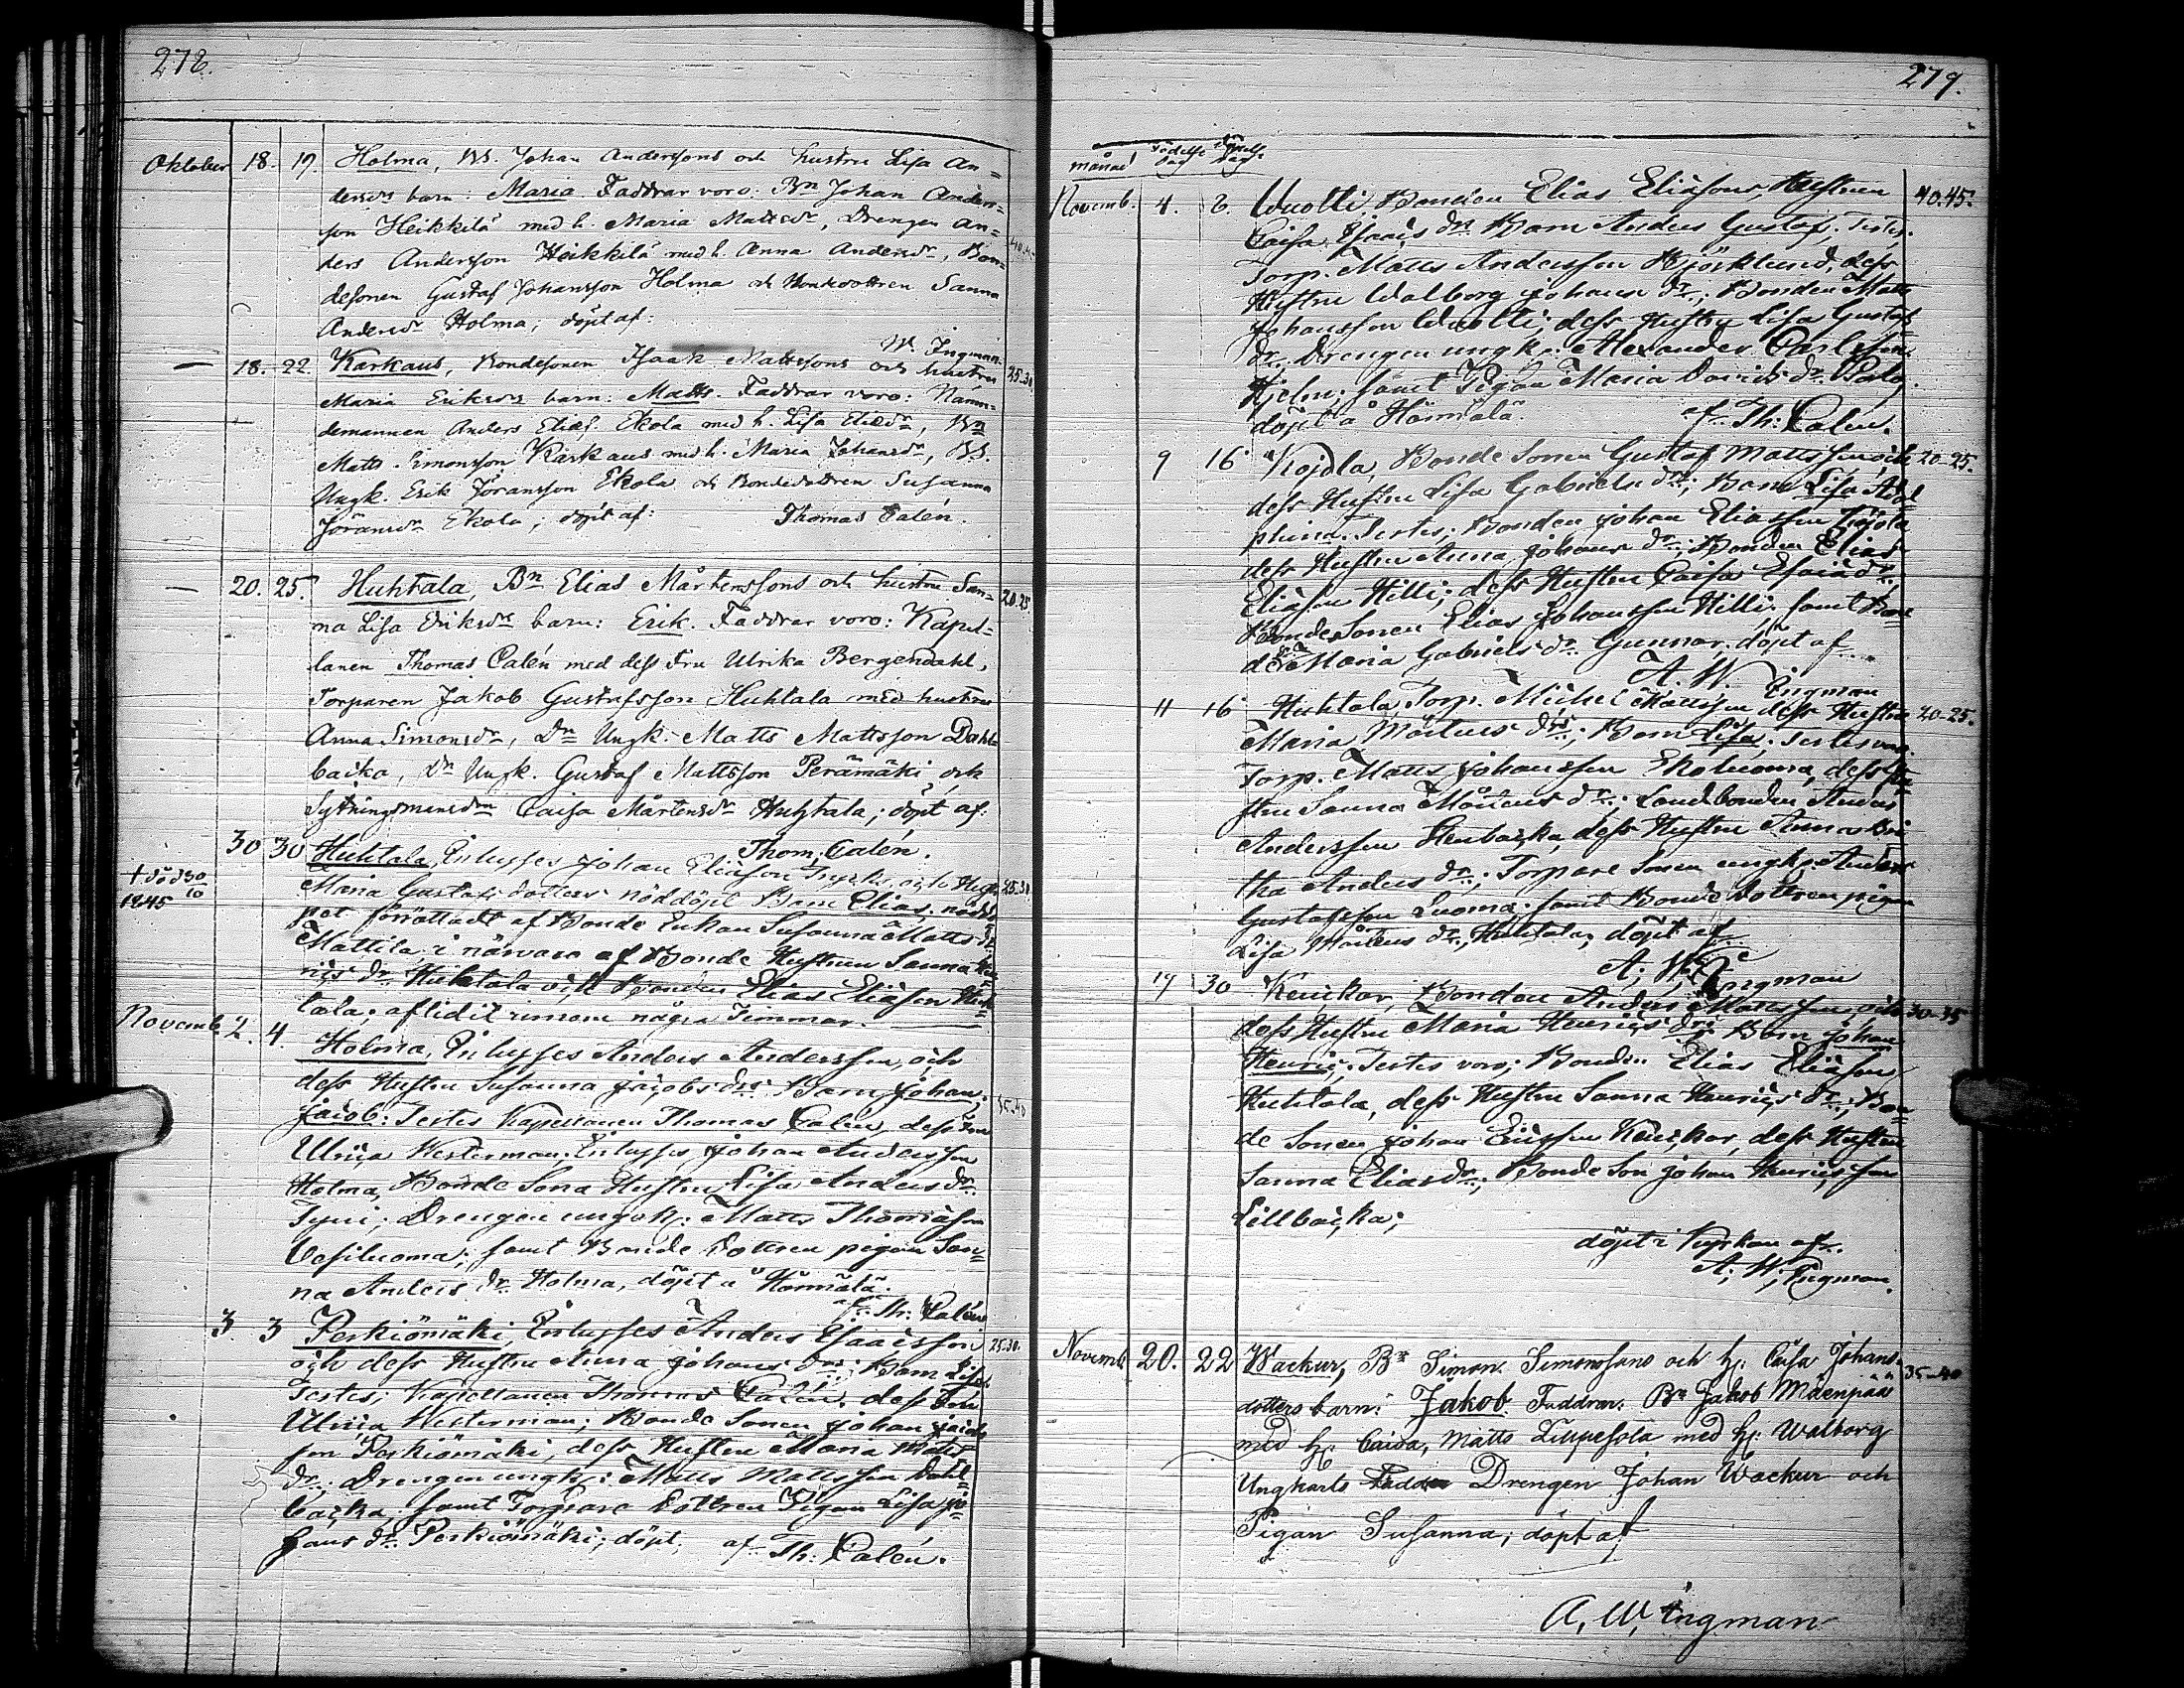 278.
Oktober 18. 19. Holma, BS. Johan Anderssons och hustru Lisa An=
dersdrs barn: Maria. Faddrar voro: Bn Johan Anders=
son Heikkilä med h. Maria Mattsdr, Drengen An=
ders Andersson Heikkilä med h. Anna Andersdr, Bon=
desonen Gustaf Johansson Holma och Bondedottren Sanna
Andersdr Holma; döpt af:
W. Ingman.
— 18. 22. Karkaus, Bondesonen Isaak Mattssons och hustru 25.30
Maria Eriksdrs barn: Matts. Faddrar voro: Nämn=
demannen Anders Eliæs. Ekola med h. Lisa Eliædr, Bn
Matts Simonsson Karkaus med h. Maria Johansdr, BS.
Ungk. Erik Jöransson Ekola och Bondedottren Susanna
Jöransdr Ekola; döpt af: Thomas Calén.
— 20. 25. Huhtala, Bn Elias Mårtenssons och hustru San= 20.25.
na Lisa Eriksdrs barn: Erik. Faddrar voro: Kapel=
lanen Thomas Calén med dess Fru Ulrika Bergendahl,
Torparen Jakob Gustafsson Huhtala med hustru
Anna Simonsdr, Dn Ungk. Matts Mattsson Dahl=
backa, Dn Ungk. Gustaf Mattsson Perämäki och
Sytningsmansdn Caisa Mårtensdr Huhtala; döpt af:
Thom. Calén.
30 30 Huhtala, Inhyses Johan Eliäson och Hustru 25.30
† död 30/10 1845
Maria Gustafs dotters nöddöpt Barn Elias, nöddo
pet förrättadt af Bonde Enkan Susanna Matts dr
Mattila, i närvaro af Bonde Hustrun Sanna Hen
rics dr Huhtala och Bonden Elias Eliäson Huh
tala; aflidit innom några Timmar.
Novemb. 2. 4. Holma, Inhyses Anders Andersson, och
dess Hustru Susanna Jacobs drs Barn Johan 35.40
Jacob: Testes Kapellanen Thomas Calén, dess Fru
Ulrica Westerman; Inhyses Johan Andersson
Holma, Bonde Sons Hustru Lisa Anders dr
Tyni; Drengen ungk: Matts Thomäson
Vesiluoma; samt Bonde Dottren pigan San=
na Anders dr Holma, döpt å Härmälä.
af Th: Calén
3. 3 Perkiömäki, Inhyses Anders Esaiasson 25.30.
och dess Hustru Anna Johans drs; Barn Lisa.
Testes; Kapellanen Thomas Calén, dess Fru
Ulrica Westerman; Bonde Sonen Johan Jacobs
son Perkiömäki, dess Hustru Maria Matts
dr; Drengen ungk: Matts Mattsson Dahl=
backa, samt Torpare Dottren Pigan Lisa Jo=
hans dr Perkiömäki; döpt, af Th: Calén.
279.
månad födelse dag döpelse dag.
Novemb. 4. 6. Wuolli, Bonden Elias Eliäsons, Hustrun 40.45.
Caisa Esaias drs Barn Anders Gustaf; Testes.
Torp. Matts Andersson Björklund, dess
Hustru Walborg Johans dr; Bonden Matts
Johansson Wuolli, dess Hustru Lisa Gustafs
dr, Drengen ungk: Alexander Carlsson
Hjelm; samt Pigan Maria Davids dr Palo,
döpt å Härmälä. af Th: Calén.
9 16 Kojola, Bonde Sonen Gustaf Mattsson och 20-25.
dess Hustru Lisa Gabriels drs; Barn Lisa Adol
phina. Testes; Bonden Johan Eliasson Kojola
dess Hustru Anna Johans dr; Bonden Elias
Eliäson Hilli; dess Hustru Caisa Esaiædr;
Bonde Sonen Elias Johansson Hilli; samt Bonde
dr Maria Gabriels dr Gunnar. döpt af
A. W. Ingman
11 16 Huhtala, Torp. Michel Mattsson dess Hustru 20-25.
Maria Mårtens drs; Barn Lisa; Testes voro
Torp. Matts Johansson Ekoluoma, dess Hu
stru Sanna Mårtens dr; Landbonden Anders
Andersson Stenbacka, dess Hustru Anna Bri
tha Anders dr; Torpare Sonen ungk: Anders
Gustafsson Luoma; samt Bonde Dottren pigan
Lisa Mårtens dr, Huhtala; döpt af
A; W; Ingman
19 30 Keickar, Bonden Anders Mattsson, och 30-35
dess Hustru Maria Henrics drs Barn Johan
Henric; Testes voro; Bonden Elias Eliäson
Huhtala, dess Hustru Sanna Henrics dr; Bon
de Sonen Johan Ericsson Keickar, dess Hustru
Sanna Eliasdr; Bonde Son Johan Henricsson
Lillbacka;
döpt i Kyrkan af
A; W; Ingman.
Novemb. 20. 22 Wackur, Bn Simon Simonssons och h: Caisa Johans= 35-40
dotters barn: Jakob. Faddrar: Bn Jakob Mäenpää
med h: Caisa, Matts Lippesola med h: Walborg
Ungkarls Drengen Johan Wackur och
Pigan Susanna; döpt af
A. W. Ingman